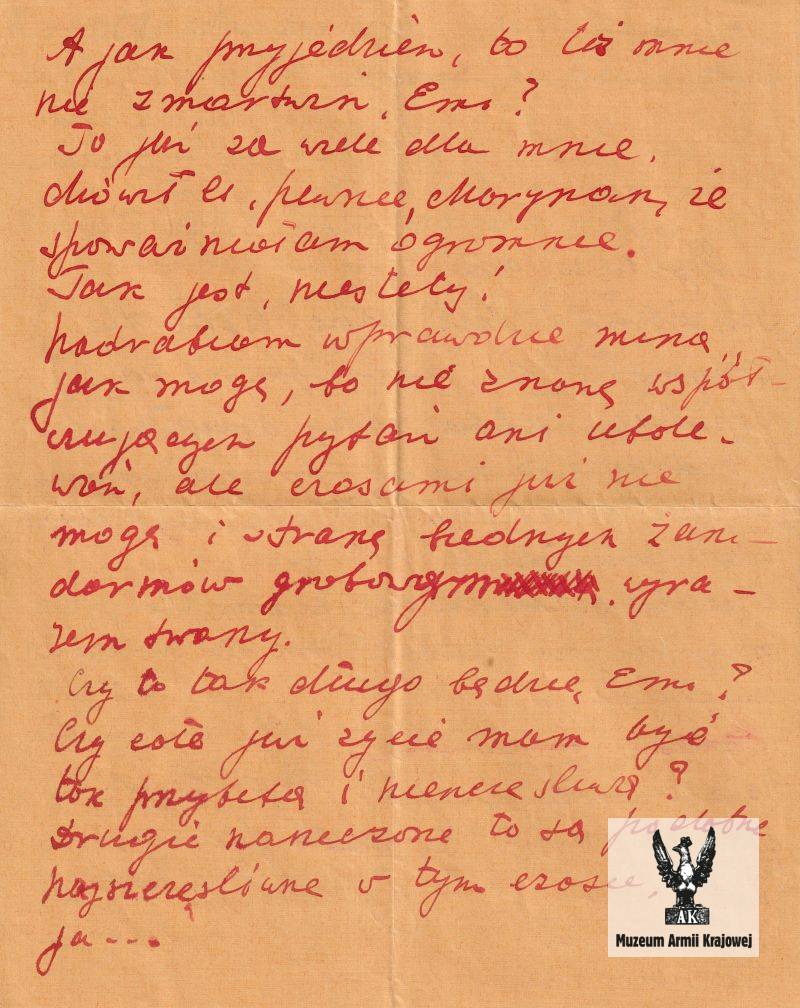 A jak przyjedziesz, to też mnie
nie zmartwisz, Emo?
To już za wiele dla mnie.
Mówił Ci, pewnie, Marynarz, że
spoważniałam ogromnie.
Tak jest, niestety!
Nadrabiam wprawdzie miną
jak mogę, bo nie znoszę współ-
czujących pytań ani ubole-
wań, ale czasami już nie
mogę i straszę biednych żan-
darmów grobowym wyra-
zem twarzy.
Czy to tak długo będzie, Emo?
Czy całe już życie mam być
tak przybitą i nieszczęśliwą?
Drugie narzeczone to są podobno
najszczęśliwsze w tym czasie,
ja...
AK
Muzeum Armii Krajowej